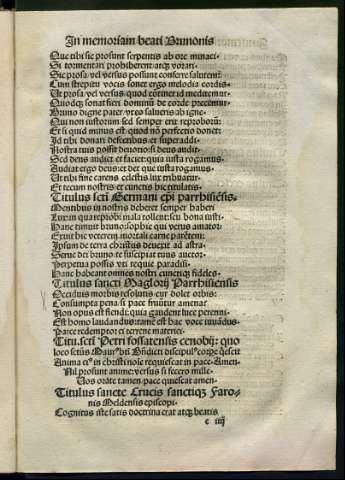 In memoriam beati Brunonis
Que tibi sic prosunt serpentis ab ore minaci·
Si tormentari prohiberent atq vorari·
Sic prosa vel versus possunt conferre salutem
Cum strepitu vocis sonet ergo melodia cordis·
Ut prosa vel versus quod continet id meditemur·
Quodq sonat fieri dominū de corde precemur·
Bruno digne pater
Qui non iustorum sed semper erit reproborū·
Et si quid minus est quod nō perfectio donet:
Id tibi donari deflentibus et superaddi·
Nostra tuis possit deuotio: si deus audit·
Sed deus audit et faciet: quia iusta rogamus·
Audiat ergo deus: et det que iusta rogamus·
Ut tibi sine carens celestis lux tribuatur·
Et tecum nostris et cunctis hic titulatis·
Titulus scti Germani epi parrhisiēsis·
Mentibus in nostris deberet semper haberi
mala tollent: seu bona iusti·
Hanc tenuit bruno: sophie qui verus amator·
Exuit hic veterem mortali carne parētem:
Ipsum de terra christus deuexit ad astra·
Serue dei bruno te suscipiat tuus auctor·
Perpetua possis vti requie paradisi·
Hanc habeant omnes nostri cunctiq fideles·
Titulus sancti Maglorij Parrhisiensis
Deciduis morbis resolutis cur dolet orbis:
Consumpta pena si pace fruūtur amena·
Non opus est flendi: quia gaudent luce perenni·
Est homo laudandus: tamē est hac voce iuuādus·
Parce redemptor ei terrene materiei·
Titu. scti Petri fossatensis cenobij: quo
loco sctūs Maurus bti Bñdicti discipul9 corpe qescit
Anima ei9 in christi noīe requiescat in pace·Amen·
Nil prosunt anime: versus si fecero mille·
Vos orate tamen pace quiescat amen·
Titulus sancte Crucis sanctiq Faro-
nis Meldensis episcopi·
Cognitus iste satis doctrina erat atq beatis
c iiij